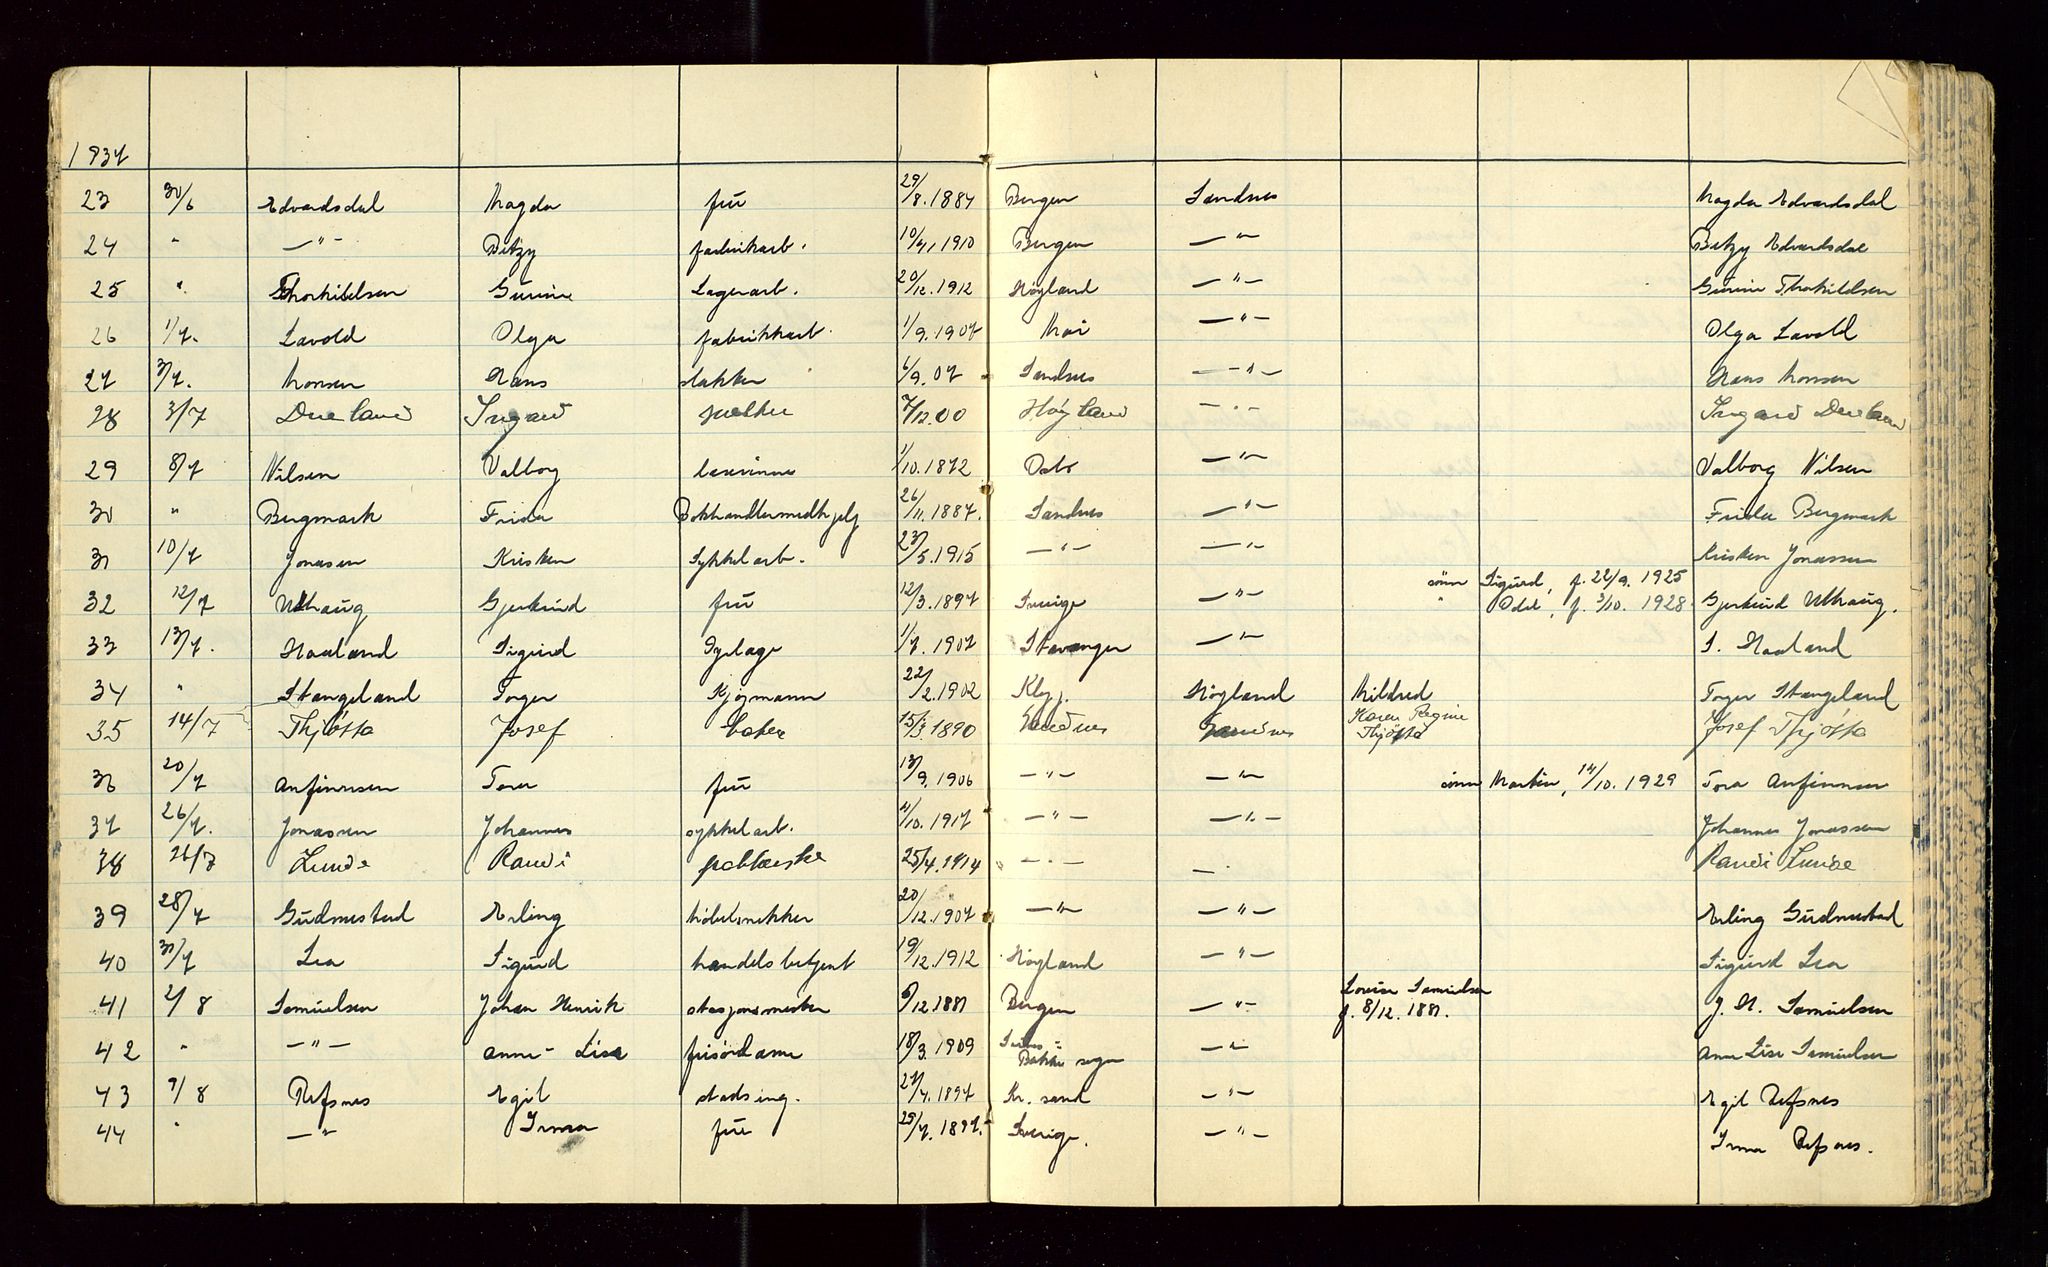 1937
23 30/6 Edvardsdal Magda frü 29/8.1884 Bergen Sandnes Magda Edvardsdal
24 " —"— Betzy fabrikarb. 10/4.1910 Bergen —"— Betzy Edvardsdal
25 " Thorkildsen Gurine Lagerarb. 20/12.1912 Høyland —"— Gurine Thorkildsen
26 1/7. Lavold Olga fabrikkarb. 1/9.1907 Moi —"— Olga Lavold
27 3/7. Monsen Hans slakter 6/9.07 Sandnes —"— Hans Monsen
28 3/7 Dueland 7/12.00 Høyland —"— Dueland
29 8/7 Nilsen Valborg lærerinne 1/10.1872 Oslo —"— Valborg Nilsen
30 " Bergmark Frida Bokhandlermedhjelp 26/11.1887. Sandnes —"— Frida Bergmark
31 10/7 Jonasen Kristen Sykkelarb. 23/5.1915 —"— —"— Kristen Jonassen
sønn Sigurd, f. 22/9. 1925
32 12/7 Ulhaug Gjertrud frü 12/3.1897 Sverige —"— " Odd, f. 3/10. 1928 Gjertrud Ulhaug.
33 13/7. Haaland Sigurd 1/7.1907 Stavanger —"— S. Haaland
34 " Stangeland Toger Kjøpmann 22/2.1902 Klepp. Høyland Mildred Toger Stangeland
35 14/7 Thjøtta Josef baker 15/3.1890 Sandnes Sandnes Karen Regine Thjøtta Josef Thjøtta
36 20/7 Anfinnsen Tora frü 13/9.1906 —"— —"— sønn Martin, 14/10.1929 Tora Anfinnsen
37 26/7. Jonassen Johannes sykkelarb. 4/10.1917 —"— —"— Johannes Jonassen
38 26/7 Lunde Randi 25/4.1914 —"— — Randi Lunde
39 28/7 Gudmestad Erling Møbelsnekker 20/12.1907 —"— —"— Erling Gudmestad
40 31/7 Lea Sigurd handelsbetjent 19/12.1912 Høyland —"— Sigurd Lea
41 2/8 Samuelsen Johan Henrik stasjonsmester 6/12.1881 Bergen —"— Lovise Samuelsen f. 8/12.1881. J. H. Samuelsen
42 " —"— Anne-Lise frisørdame 18/3.1909 Bakke sogn —"— Anne Lise Samuelsen
43 9/8 Refsnes Egil stadsing. 27/4.1897 Kr. sand —"— Egil Refsnes
44 " —"— Irma frü 29/7.1897. Sverige. —"— Irma Refsnes.